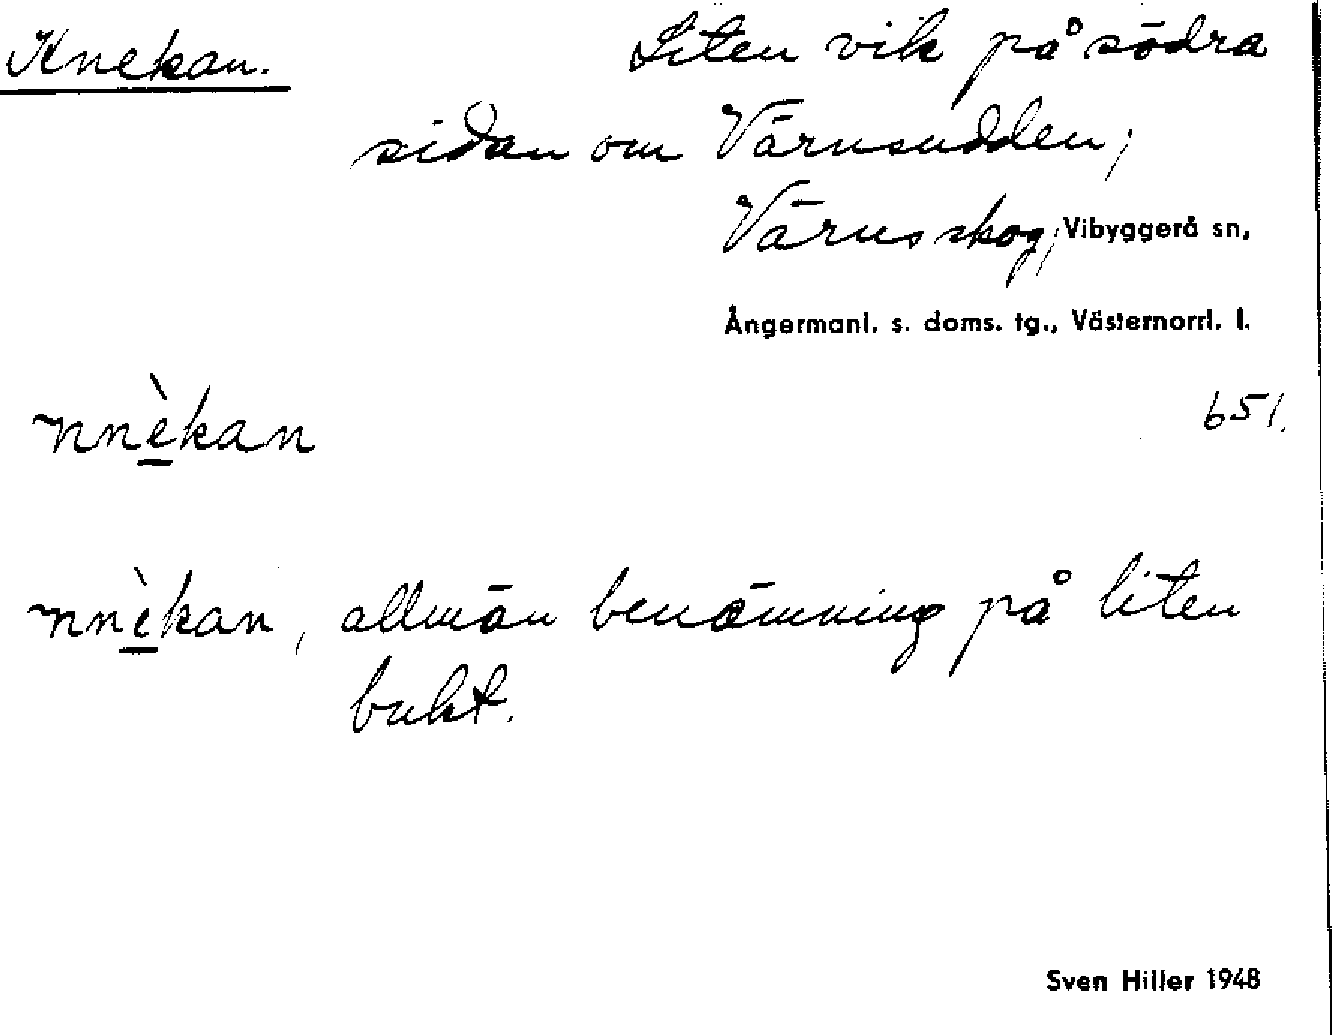 Knekan. Liten vik på södra
sidan om Värnsudden;
Värns skog; Vibyggerå sn,
Ångermanl. s. doms. tg., Västernorrl. l.
651.
nnèkan
nnèkan, allmän benämning på liten
bukt.
Sven Hiller 1948